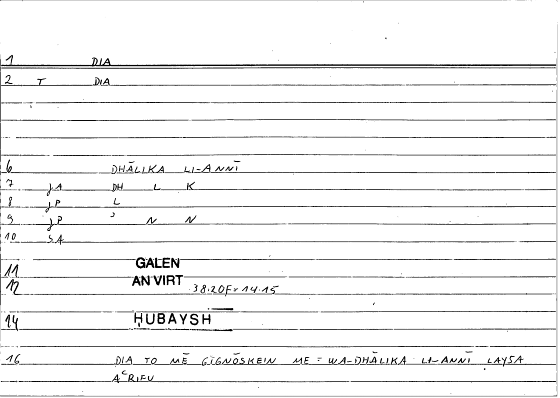 1 DIA
2 T DIA
6 DHĀLIKA LI-ANNĪ
7 JA DH L K
8 JP L
9 JP ʾ N N
10 SA
11 GALEN
12 AN VIRT 38.20F = 14.15
14 ḤUBAYSH
16 DIA TO MĒ GIGNŌSKEIN ME = WA-DHĀLIKA LI-ANNĪ LAYSA
AʿRIFU